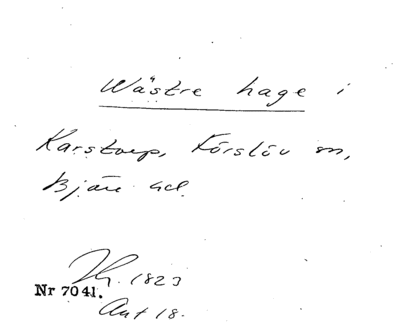 Wästre hage i
Karstorp, Förslöv sn,
Bjäre hd.
1823
Nr 7041.
Akt 18.